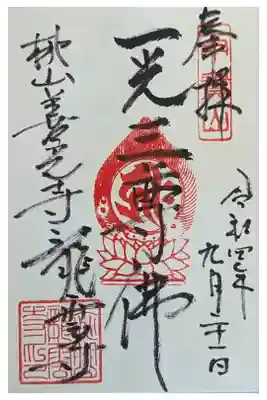 奉拝
令和四年
九月二十一日
一光三尊佛
桃山善光寺